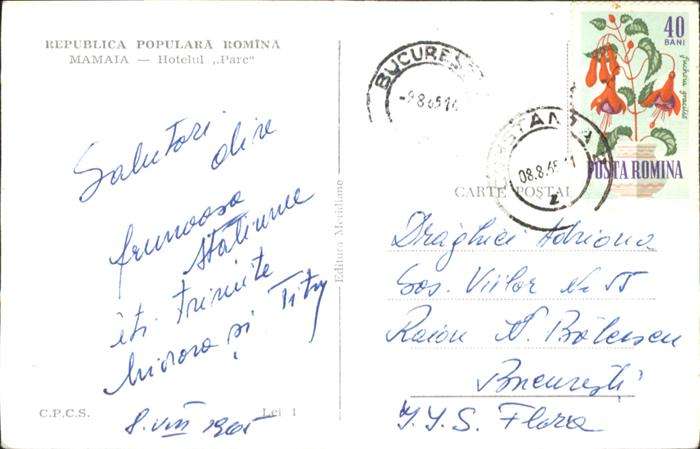 REPUBLICA POPULARĂ ROMÎNĂ
MAMAIA — Hotelul „Parc"
Salutari dire
frumoasa
stațiune
îți trimite
și Tity
8.VIII 1965
C.P.C.S.
Lei 1
Editura Meridiane
BUCUREȘ
-9.8.65.1
CONSTANȚA
08.8.65.11
2
40
BANI
fuchsia gracilis
POSTA ROMINA
CARTE POȘTAL
Drăghici Adriana
Sos. Viilor No 55
Raion N. Bălcescu
București
I.I.S. Flora